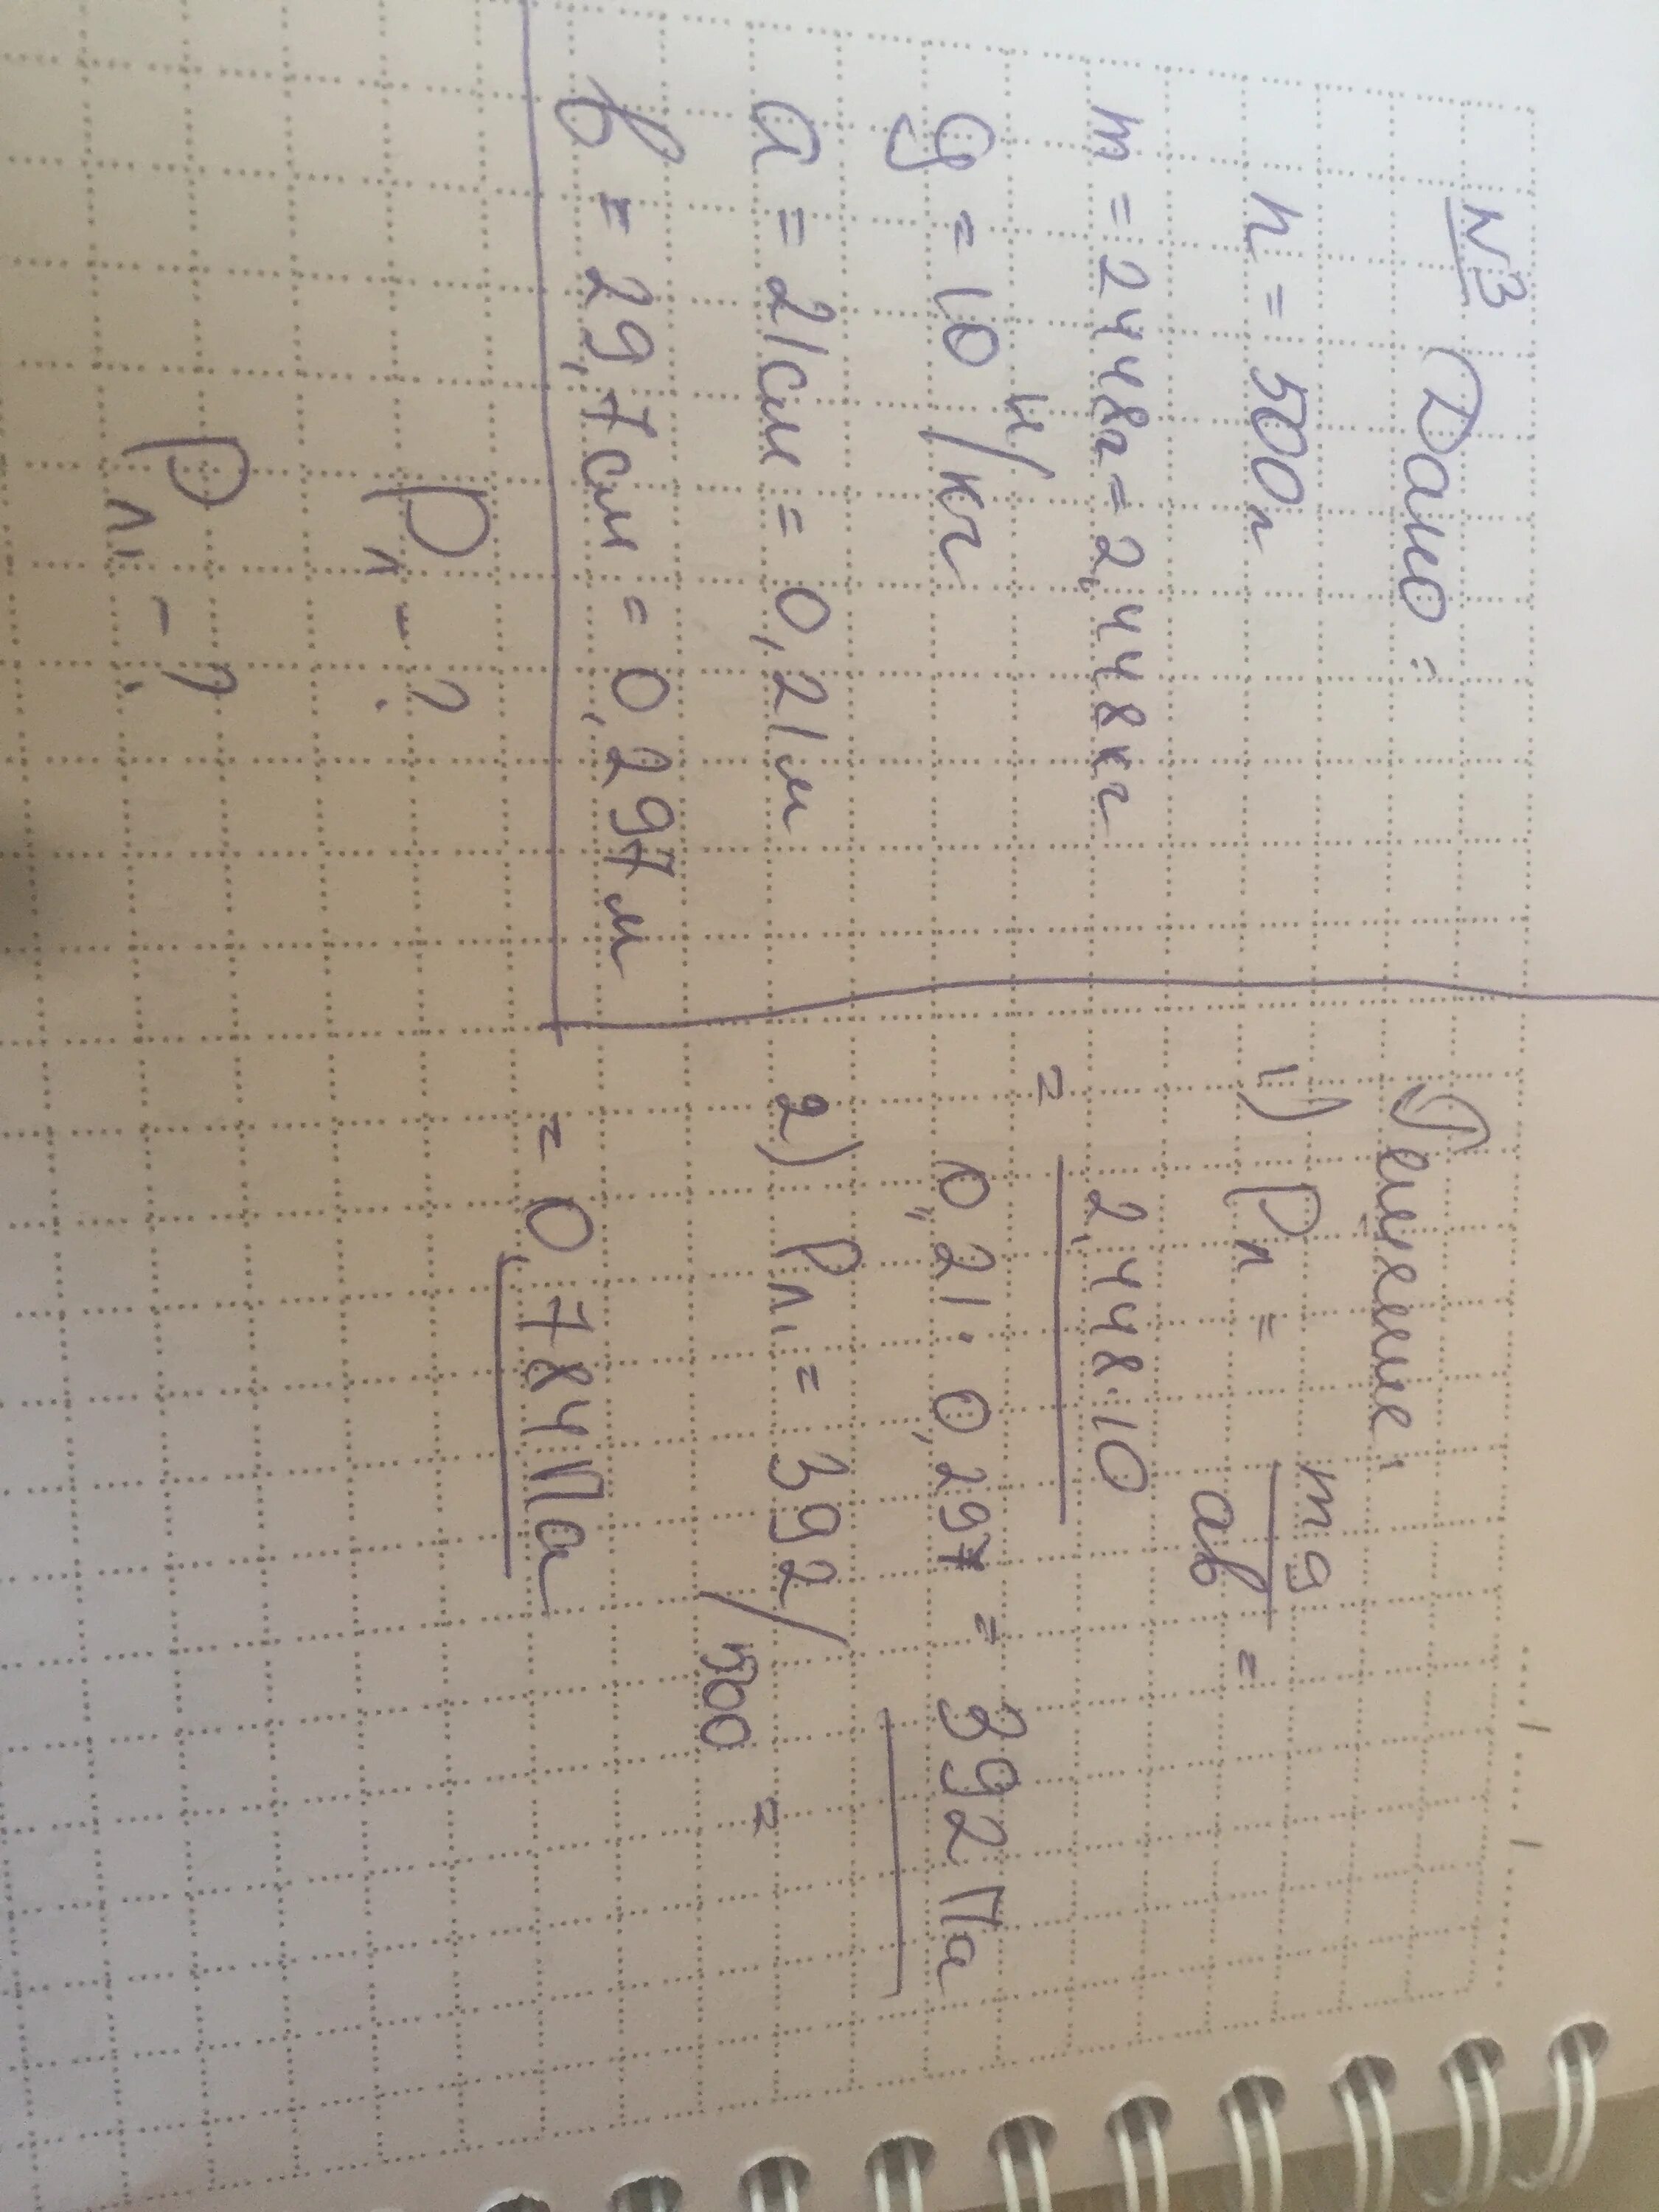 №3 Дано:
n = 500л
m = 2448г = 2,448кг
g = 10 Н/кг
a = 21см = 0,21м
b = 29,7см = 0,297м
Pп - ?
Pл1 - ?
Решение:
1) Pп = mg/ab =
= 2,448·10
0,21·0,297 = 392 Па
2) Pл1 = 392/500 =
= 0,784Па